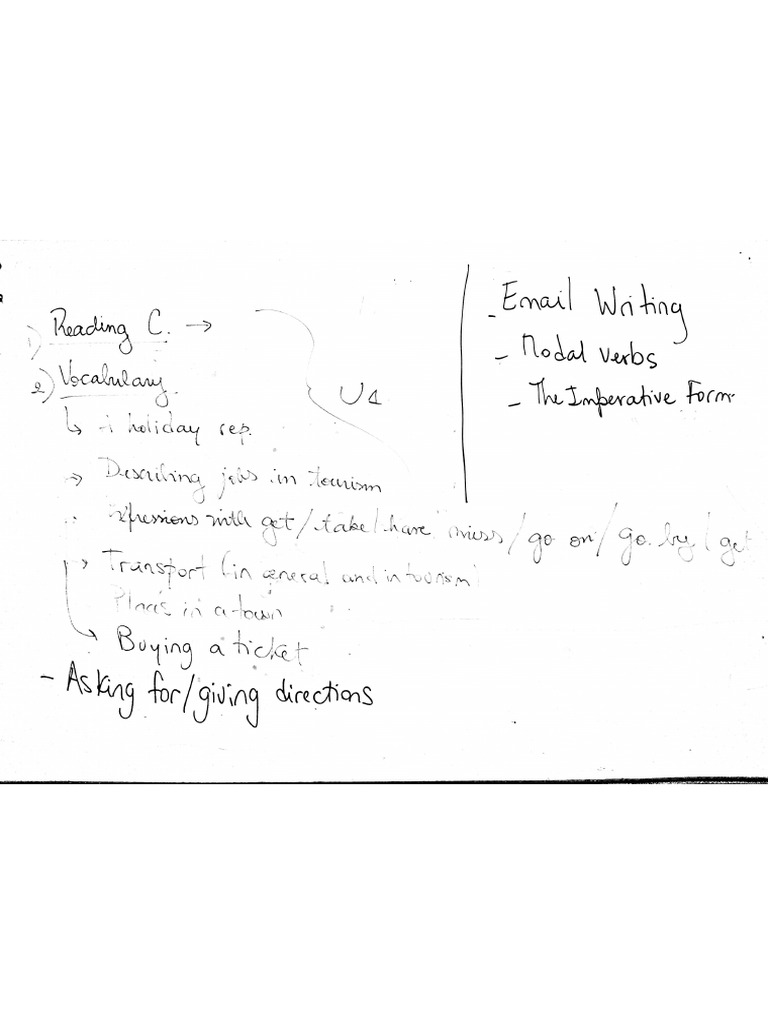 1) Reading C. →
2) Vocabulary.
↳ holiday rep.
→ Describing jobs in tourism
expressions with get / take / have miss / go on / go by / get
→ Transport (in general and in tourism)
Places in a town
→ Buying a ticket
- Asking for/giving directions
- Email Writing
- Modal verbs
- The Imperative Form